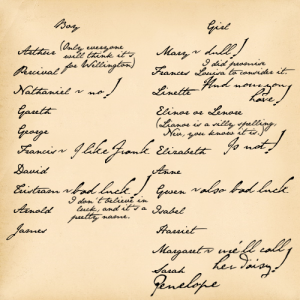 Boy
Arthur (Only everyone
will think it's
for Wellington)
Percival
Nathaniel ~ no!
Gareth
George
Francis ~ I like Frank
David
Tristram ~ bad luck!
I don't believe in
luck, and it's a
pretty name.
Arnold
James
Girl
Mary ~ dull!
I did promise
Frances Louisa to consider it.
Linette And nonsense
have!
Elinor or Lenore
(Leanor is a silly spelling.
Nev, you know it is)
Elizabeth Is not!
Anne
Gwen ~ also bad luck
Isabel
Harriet
Margaret ~ we'll call
her daisy!
Sarah
Penelope